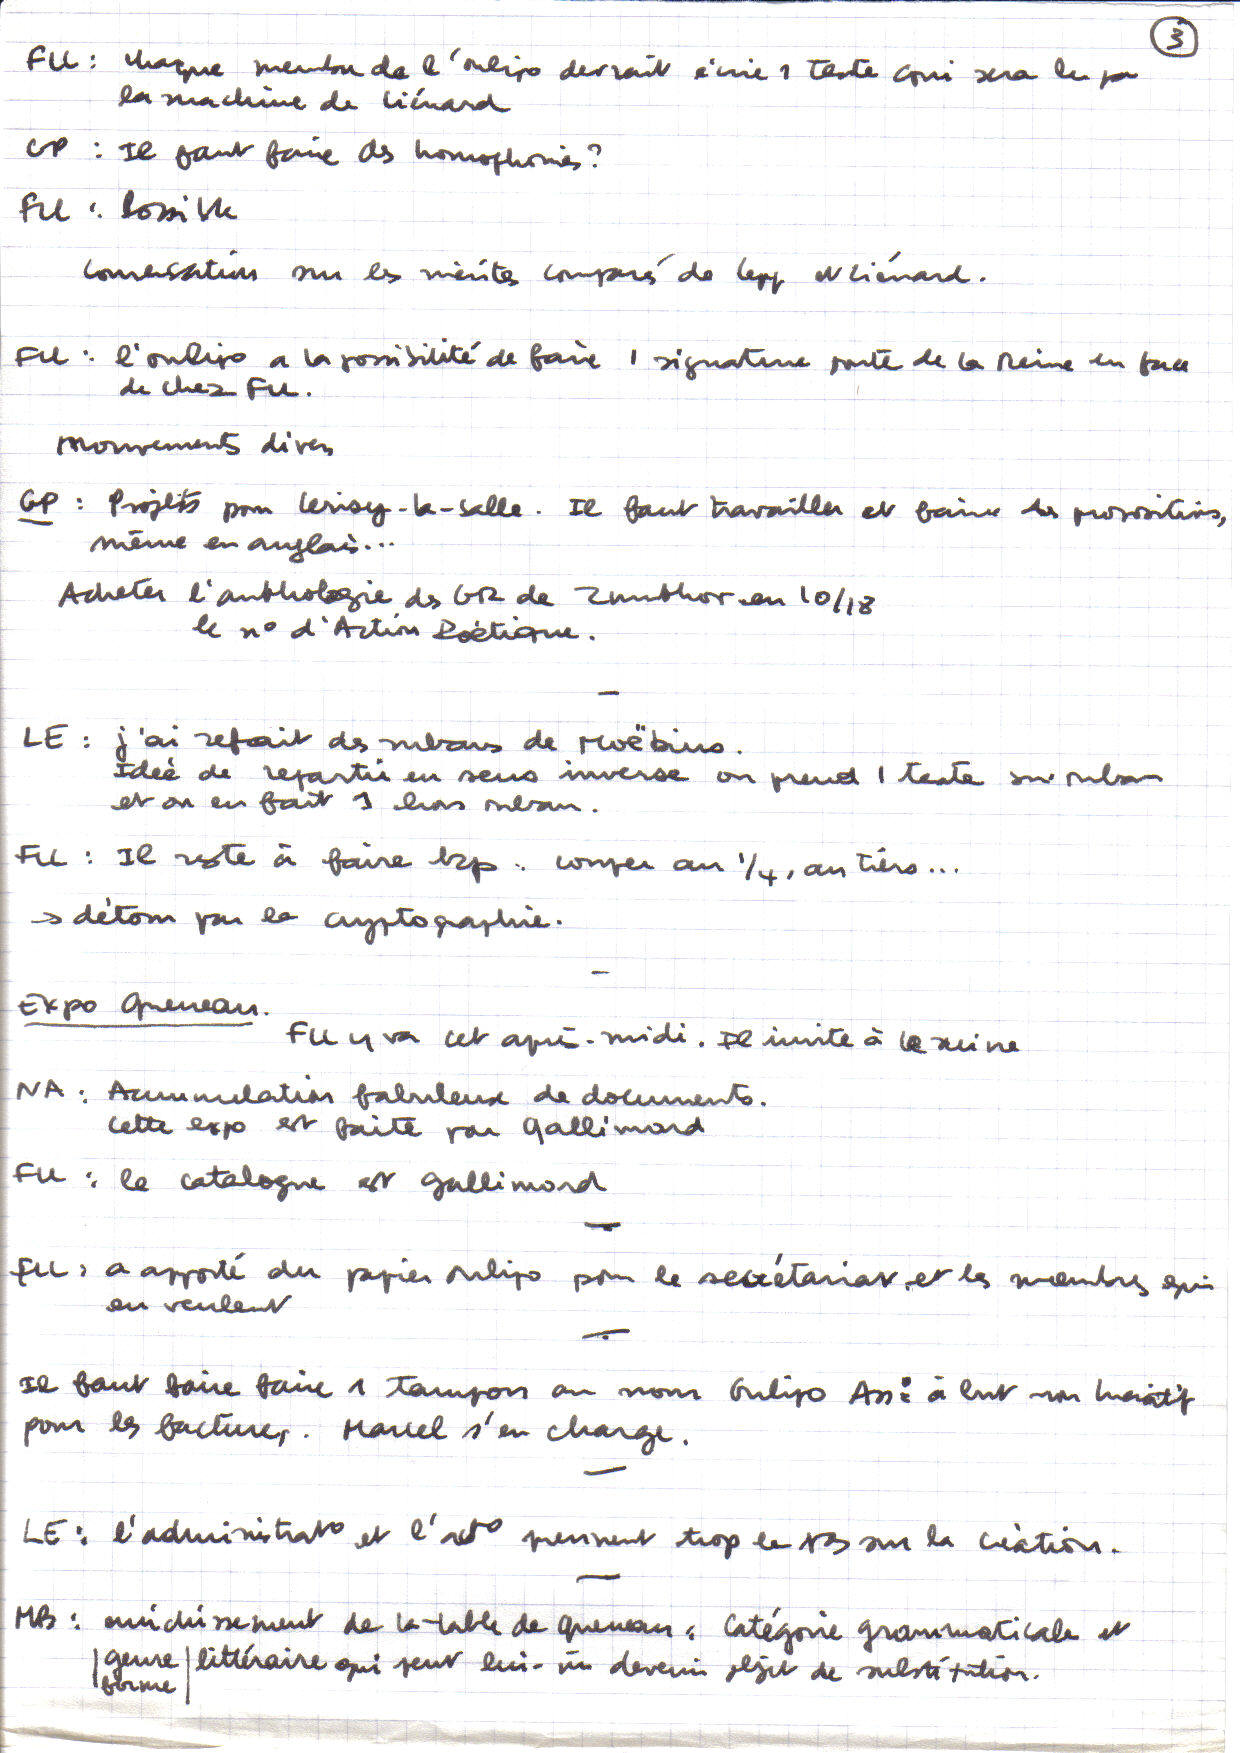 3
FLL : chaque membre de l'oulipo devrait écrire 1 texte qui sera lu par
la machine de Liénard
GP : Il faut faire des homophonies ?
FLL : Possible
Conversation sur les mérites comparés de Lepp et Liénard.
FLL : l'oulipo a la possibilité de faire 1 signature porte de la Reine en face
de chez FLL.
mouvements divers
GP : Projets pour Cerisy-la-Salle. Il faut travailler et faire des propositions,
même en anglais...
Acheter l'anthologie des GR de Zumthor en 10/18
le n° d'Action Poétique.
–
LE : j'ai refait des rubans de Moëbius.
Idée de repartir en sens inverse on prend 1 texte sur ruban
et on en fait 1 hors ruban.
FLL : Il reste à faire bcp. couper au 1/4, au tiers...
→ détour par la cryptographie.
–
Expo Queneau.
FLL y va cet après-midi. Il invite à le suivre
NA : Accumulation fabuleuse de documents.
Cette expo est faite par Gallimard
FLL : le catalogue est Gallimard
–
FLL : a apporté du papier oulipo pour le secrétariat, et les membres qui
en veulent
–
Il faut faire faire 1 tampon au nom Oulipo Ass. à but non lucratif
pour les factures. Marcel s'en charge.
–
LE : l'administrat° et l'act° prennent trop le pas sur la création.
–
MB : enrichissement de la table de Queneau : Catégorie grammaticale et
genre littéraire qui peut lui-m devenir objet de substitution.
forme